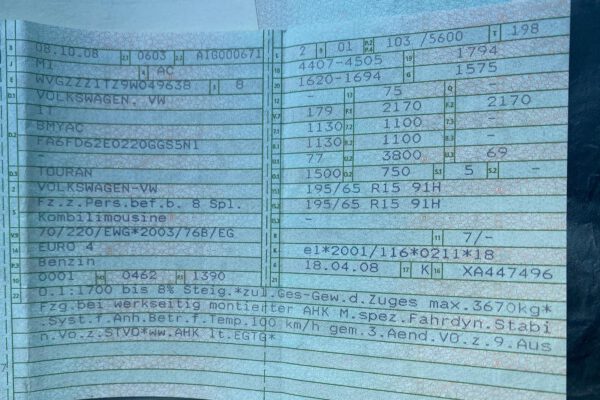 B 08.10.08 2.1 0603 2.2 AIG000671
J M1 4 AC
E WVGZZZ1TZ9W049638 3 8
VOLKSWAGEN. VW
1T
D.2 BMYAC
FA6FD62E0220GGS5N1
-
D.3 TOURAN
2 VOLKSWAGEN-VW
5 Fz.z.Pers.bef.b. 8 Spl.
Kombilimousine
V.9 70/220/EWG*2003/76B/EG
14 EURO 4
P.3 Benzin
10 0001 14.1 0462 P.1 1390
22 O.1:1700 bis 8% Steig.*zul.Ges-Gew.d.Zuges max.3670kg*
Fzg.bei werkseitig montierter AHK M.spez.Fahrdyn.Stabi
.Syst.f.Anh.Betr.f.Temp.100 km/h gem.3.Aend.VO.z.9.Aus
n.Vo.z.STVO*ww.AHK lt.EGTG*
L 2 9 01 P.2 P.4 103 /5600 T 198
18 4407-4505 19 1794
20 1620-1694 G 1575
12 - 13 75 Q -
V.7 179 F.1 2170 F.2 2170
7.1 1130 7.2 1100 7.3 -
8.1 1130 8.2 1100 8.3 -
U.1 77 U.2 3800 U.3 69
O.1 1500 O.2 750 S.1 5 S.2 -
15.1 195/65 R15 91H
15.2 195/65 R15 91H
15.3 -
R - 11 7/-
K e1*2001/116*0211*18
6 18.04.08 17 K 16 XA447496
21